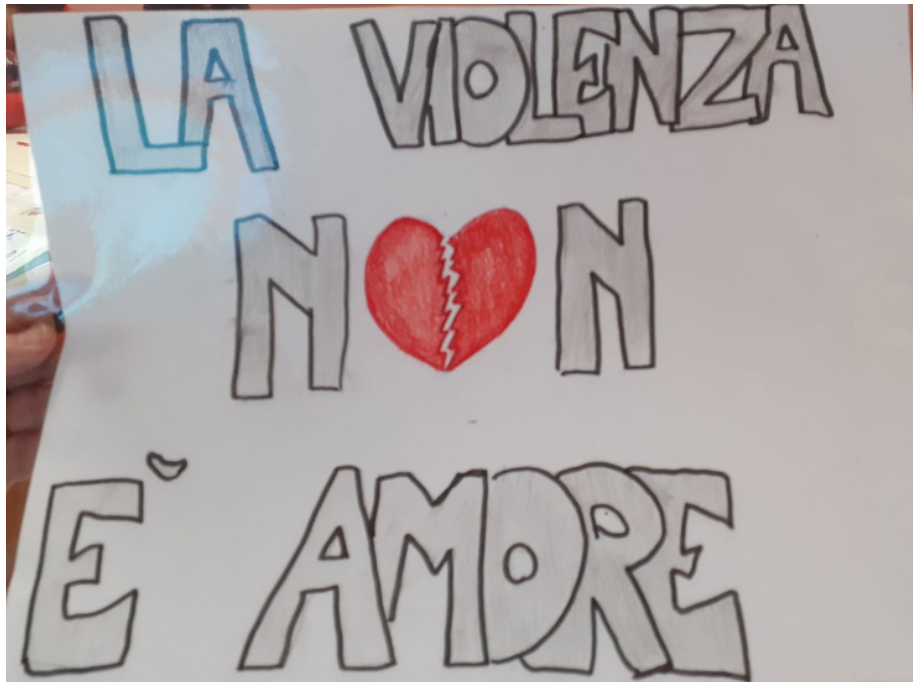 LA VIOLENZA
N N
È AMORE